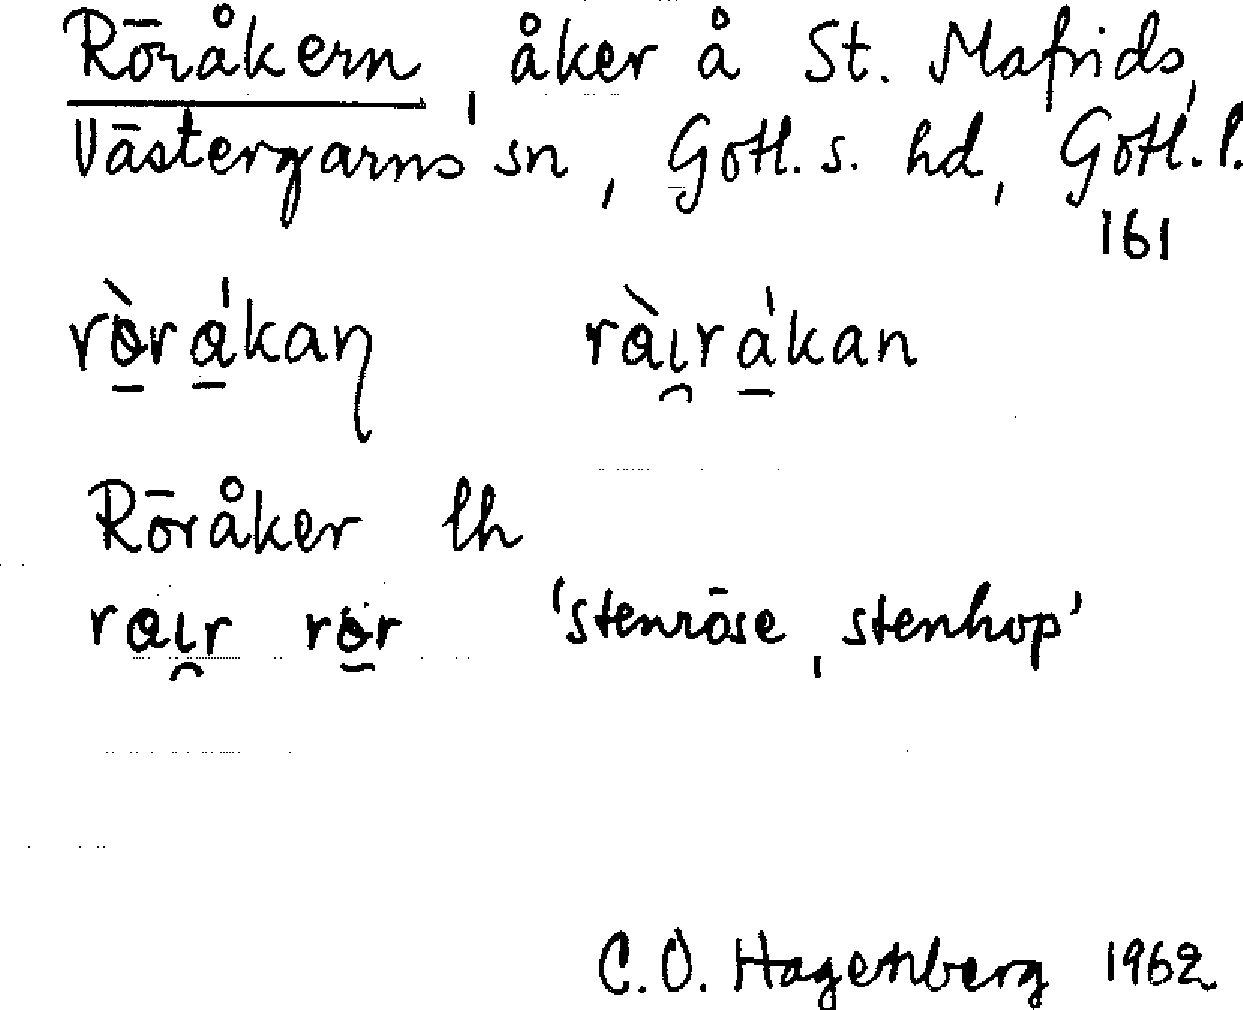 Röråkern, åker å St. Mafrids,
Västergarns sn, Gotl. s. hd, Gotl. l.
161
rò̱rá̱kaŋ ràı̯rá̱kan
Röråker lh
raı̯r rö̱r 'stenröse, stenhop'
C.O. Hagenberg 1962